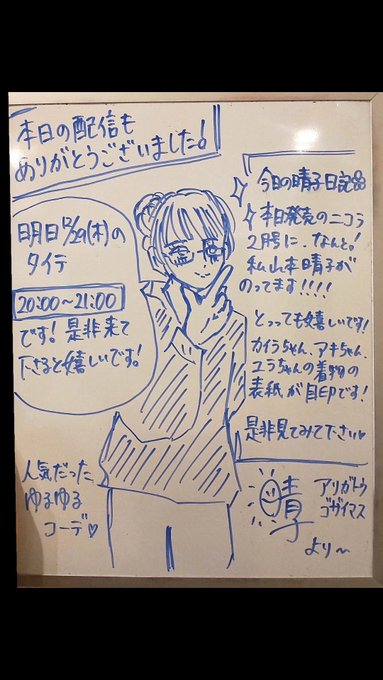 本日の配信も
ありがとうございました!
明日12/29(木)の
タイテ
20:00~21:00
です!是非来て
下さると嬉しいです!
人気だった
ゆるゆる
コーデ♡
今日の晴子日記
本日発売のニコラ
2月号に、なんと!
私山本晴子が
のってます!!!!
とっっても嬉しいです!
カイラちゃん、アキちゃん、
ユラちゃんの着物の
表紙が目印です!
是非見てみて下さい♡
晴子
アリガトウ
ゴザイマス
より~